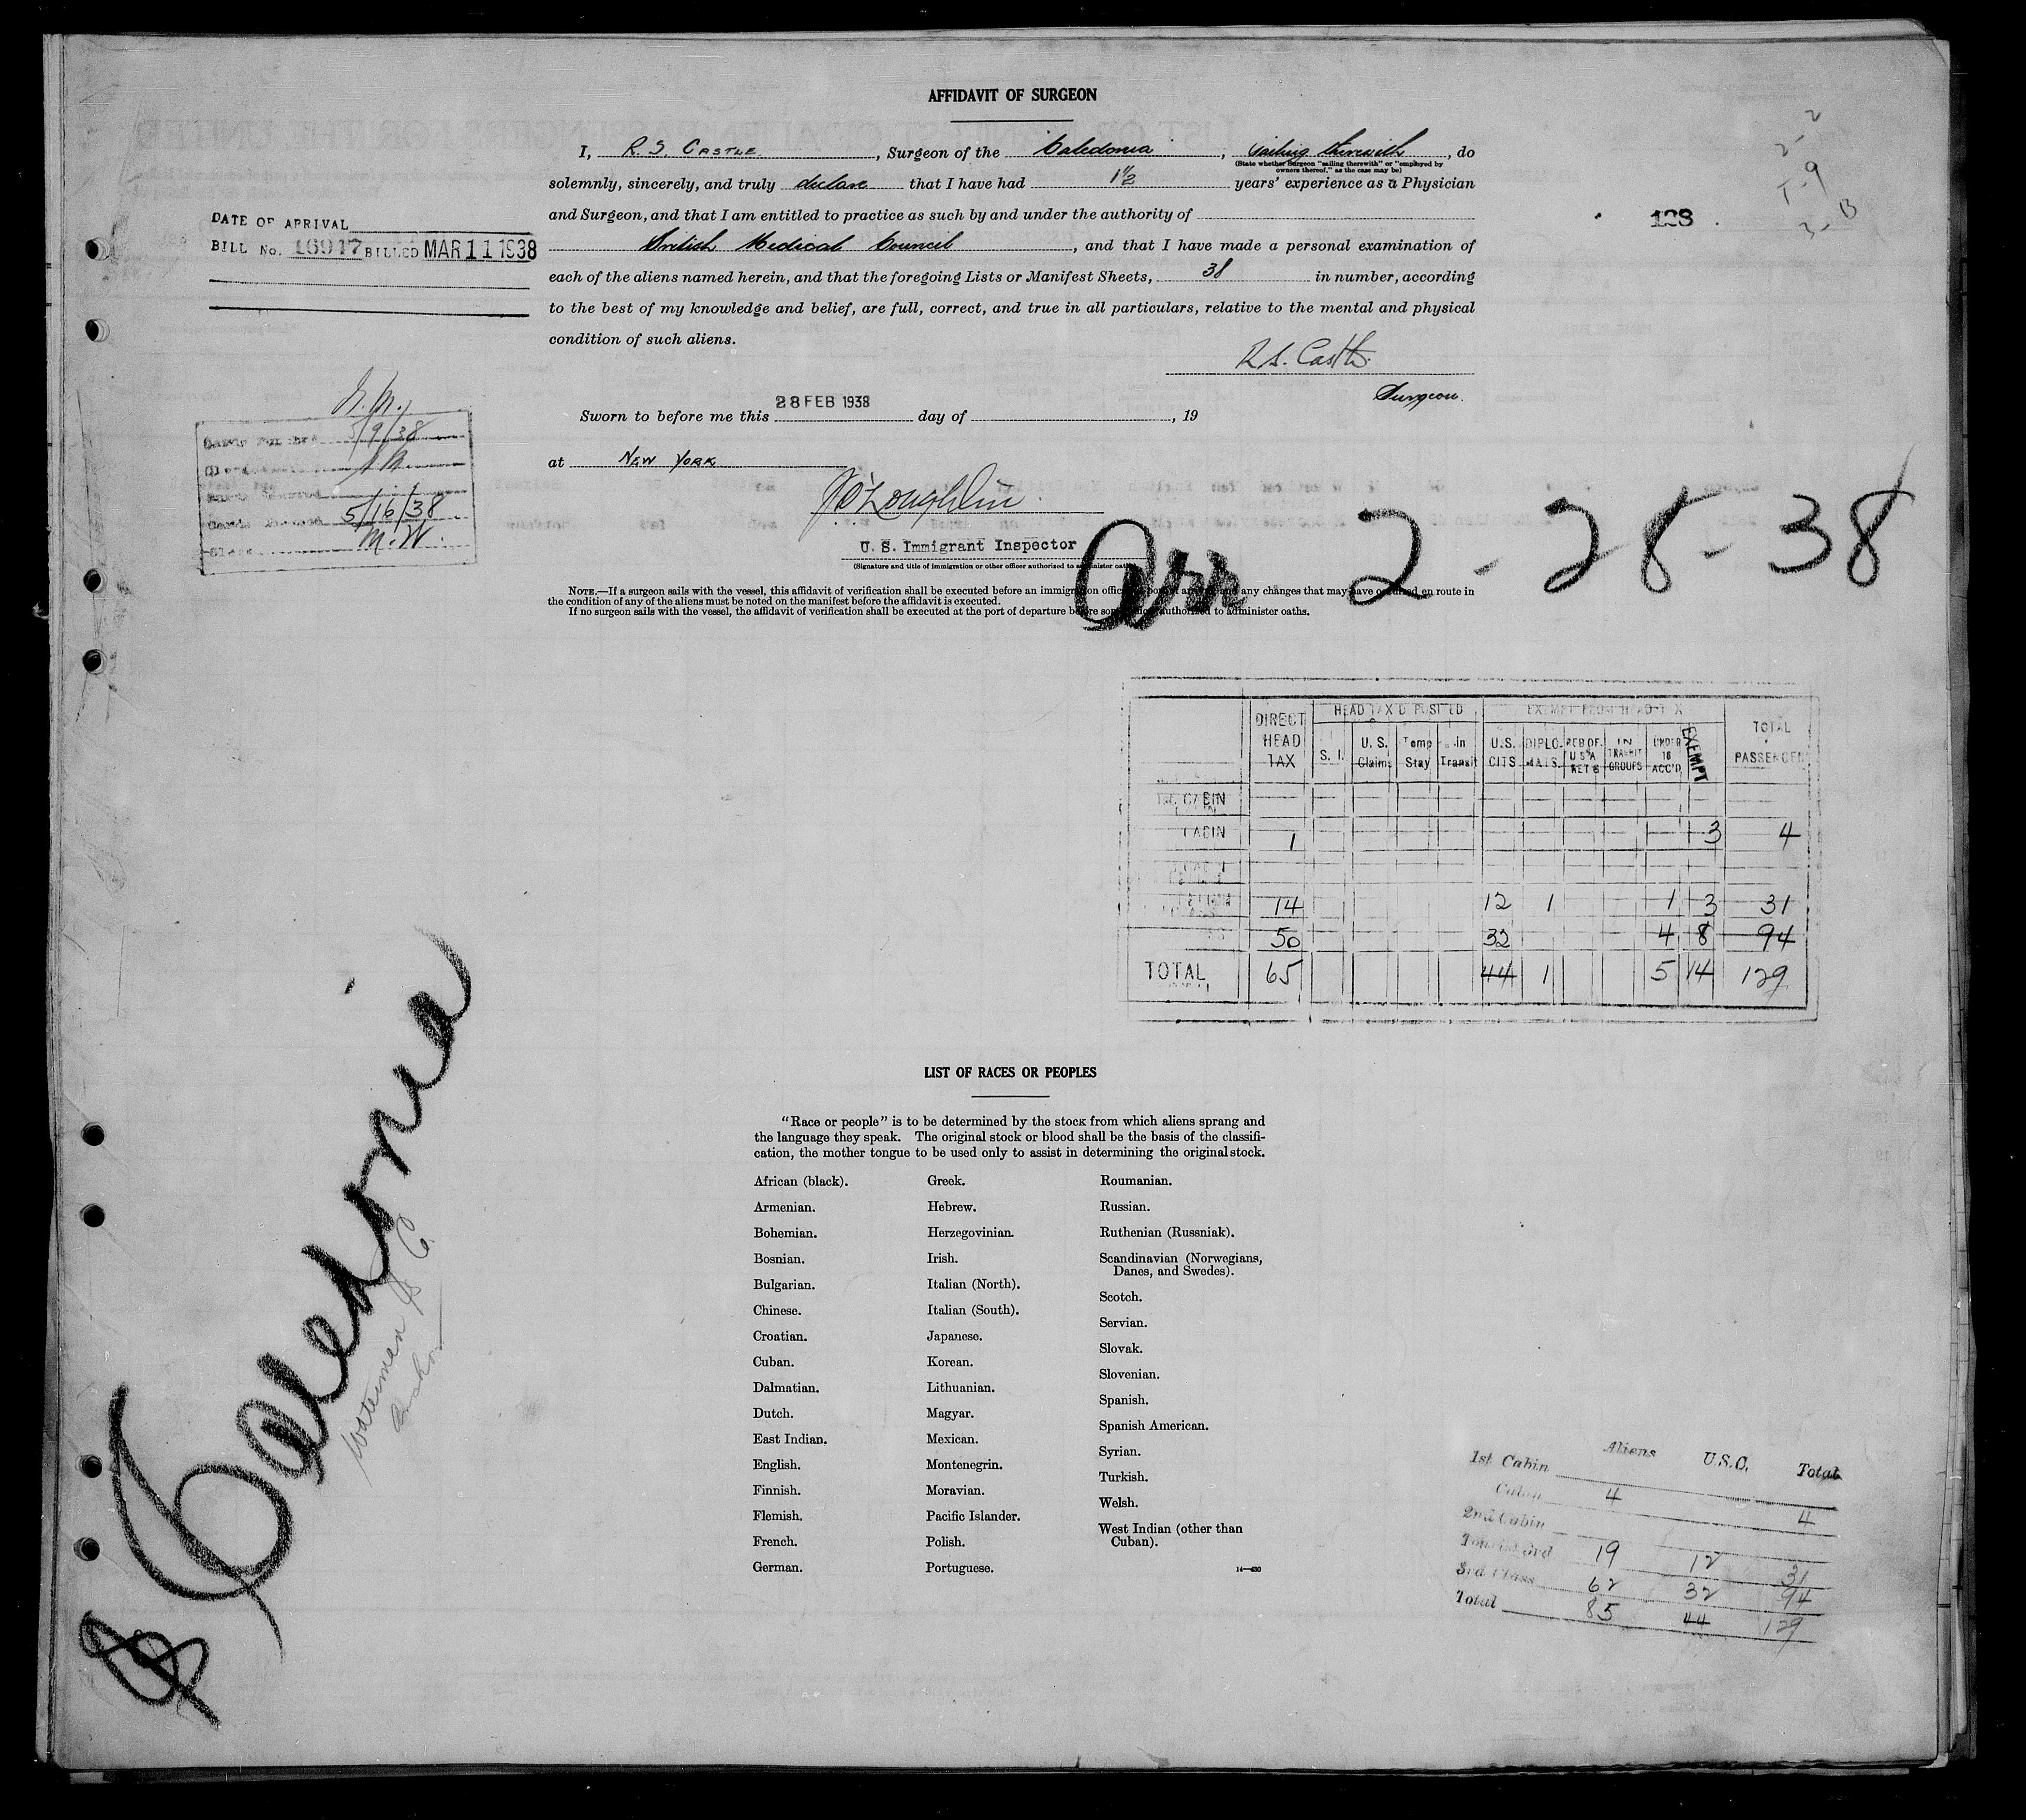 AFFIDAVIT OF SURGEON
I, R. S. CASTLE, Surgeon of the Caledonia, sailing therewith, do
(State whether Surgeon "sailing therewith" or "employed by owners thereof," as the case may be)
solemnly, sincerely, and truly declare that I have had 1½ years' experience as a Physician
and Surgeon, and that I am entitled to practice as such by and under the authority of
British Medical Council, and that I have made a personal examination of
each of the aliens named herein, and that the foregoing Lists or Manifest Sheets, 38 in number, according
to the best of my knowledge and belief, are full, correct, and true in all particulars, relative to the mental and physical
condition of such aliens.
R.S. Castle
Surgeon.
Sworn to before me this 28 FEB 1938 day of , 19
at NEW YORK
J O'Loughlin
U. S. Immigrant Inspector
(Signature and title of immigration or other officer authorized to administer oaths)
NOTE.—If a surgeon sails with the vessel, this affidavit of verification shall be executed before an immigration officer any changes that may have occurred en route in
the condition of any of the aliens must be noted on the manifest before the affidavit is executed.
If no surgeon sails with the vessel, the affidavit of verification shall be executed at the port of departure before authorized to administer oaths.
DATE OF ARRIVAL
BILL No. 16917 BILLED MAR 11 1938
128
2-2
T-9
3-B
5/9/38
5/16/38
M.W.
Arr 2-28-38
DIRECT HEAD TAX
HEAD TAX DEPOSITED
EXEMPT FROM HEAD TAX
TOTAL PASSENGERS
S. I. U. S. Claims Temp Stay in Transit U.S. CITS. DIPLOMATS. IN TRANSIT GROUPS UNDER 16 ACC'D EXEMPT
1st CABIN
CABIN 1 3 4
14 12 1 1 3 31
50 32 4 8 94
TOTAL 65 44 1 5 14 129
LIST OF RACES OR PEOPLES
"Race or people" is to be determined by the stock from which aliens sprang and
the language they speak. The original stock or blood shall be the basis of the classifi-
cation, the mother tongue to be used only to assist in determining the original stock.
African (black).
Armenian.
Bohemian.
Bosnian.
Bulgarian.
Chinese.
Croatian.
Cuban.
Dalmatian.
Dutch.
East Indian.
English.
Finnish.
Flemish.
French.
German.
Greek.
Hebrew.
Herzegovinian.
Irish.
Italian (North).
Italian (South).
Japanese.
Korean.
Lithuanian.
Magyar.
Mexican.
Montenegrin.
Moravian.
Pacific Islander.
Polish.
Portuguese.
Roumanian.
Russian.
Ruthenian (Russniak).
Scandinavian (Norwegians,
Danes, and Swedes).
Scotch.
Servian.
Slovak.
Slovenian.
Spanish.
Spanish American.
Syrian.
Turkish.
Welsh.
West Indian (other than
Cuban).
14—430
Caledonia
Waterman
Aliens U.S.C. Total
1st Cabin
Cabin 4 4
2nd Cabin
Tourist 3rd 19 12 31
3rd Class 62 32 94
Total 85 44 129